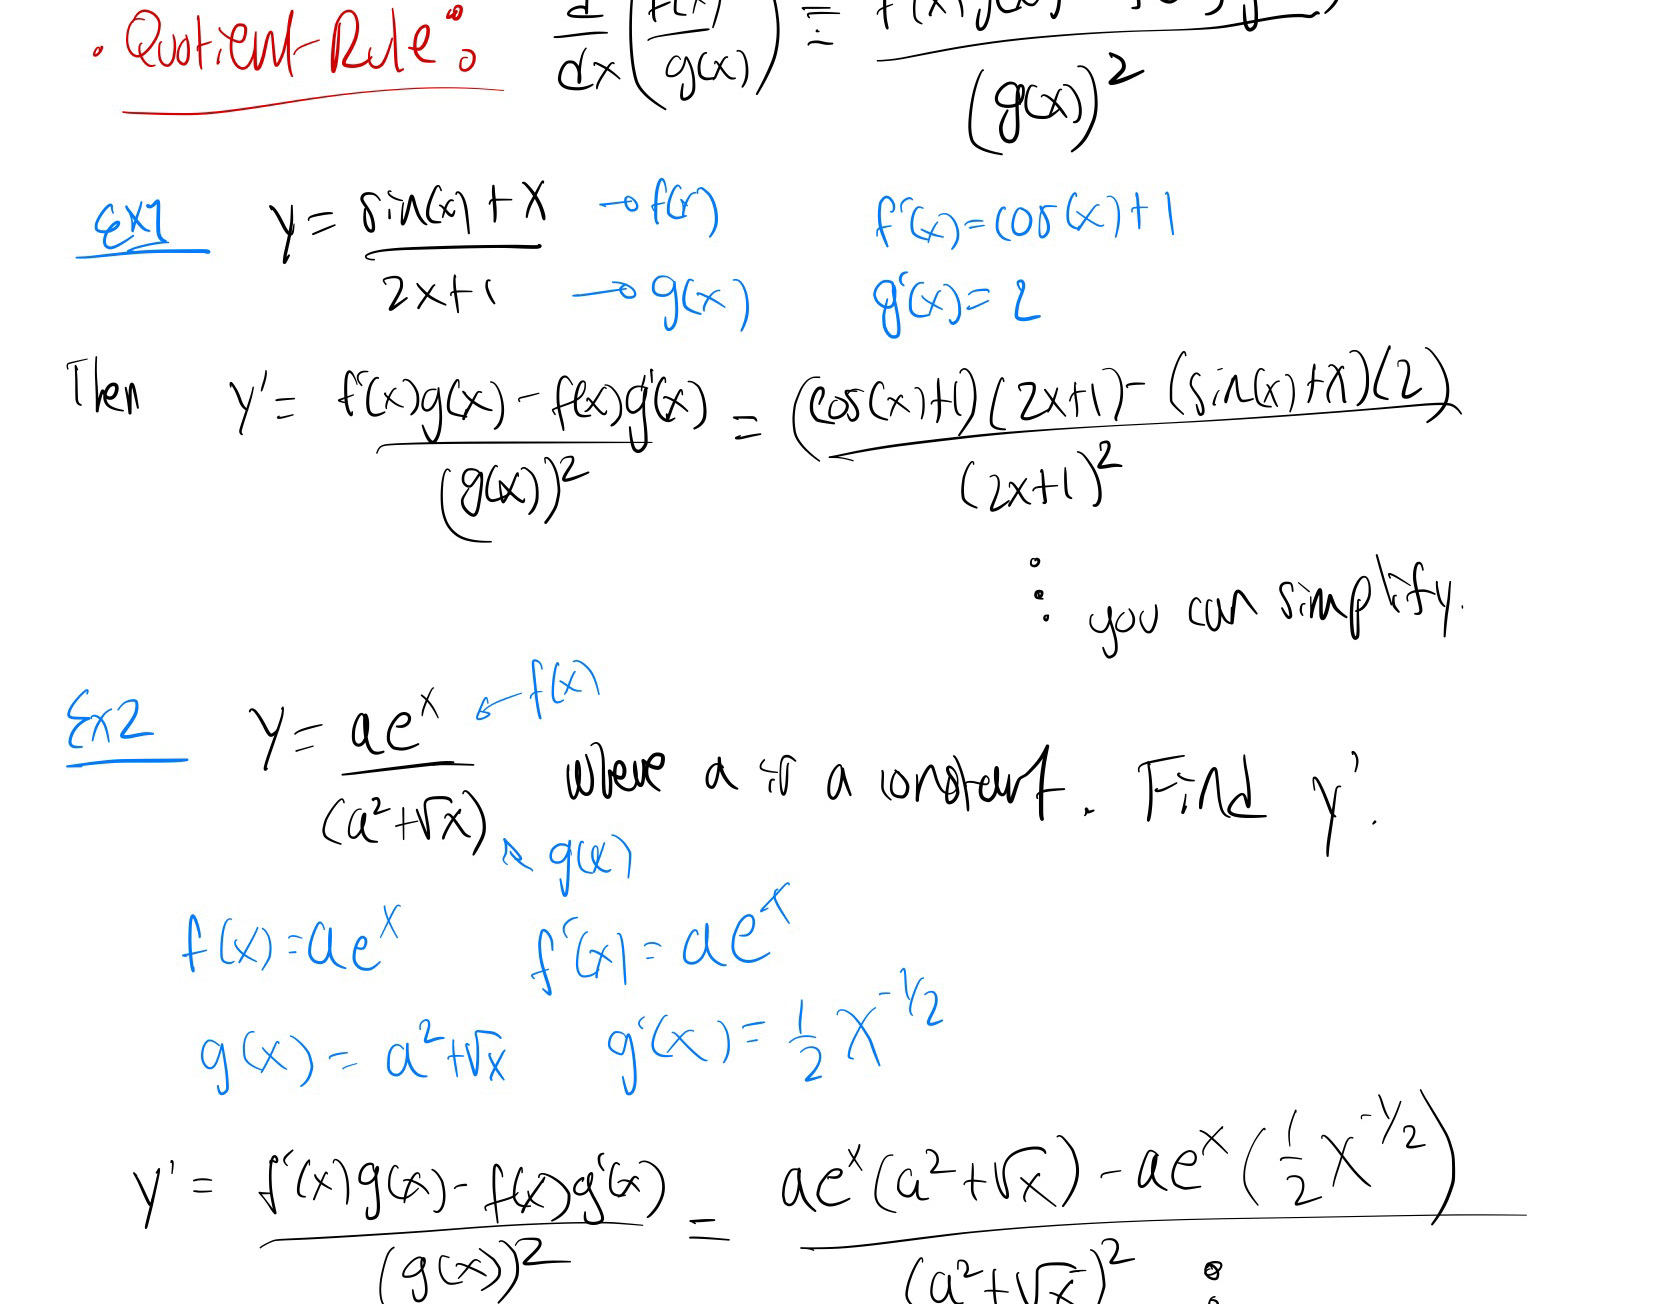 • Quotient-Rule: d/dx (f(x)/g(x)) = / (g(x))²
Ex1 y = (sin(x) + x)/(2x+1) → f(x) → g(x) f'(x) = cos(x) + 1
g'(x) = 2
Then y' = (f'(x)g(x) - f(x)g'(x))/(g(x))² = ((cos(x)+1)(2x+1) - (sin(x)+x)(2))/(2x+1)²
⋮ you can simplify.
Ex2 y = ae^x/(a²+√x) ← f(x) where a is a constant. Find y'.
↖ g(x)
f(x) = ae^x f'(x) = ae^x
g(x) = a²+√x g'(x) = 1/2 x^(-1/2)
y' = (f'(x)g(x) - f(x)g'(x))/(g(x))² = (ae^x(a²+√x) - ae^x(1/2 x^(-1/2)))/(a²+√x)² ⋮